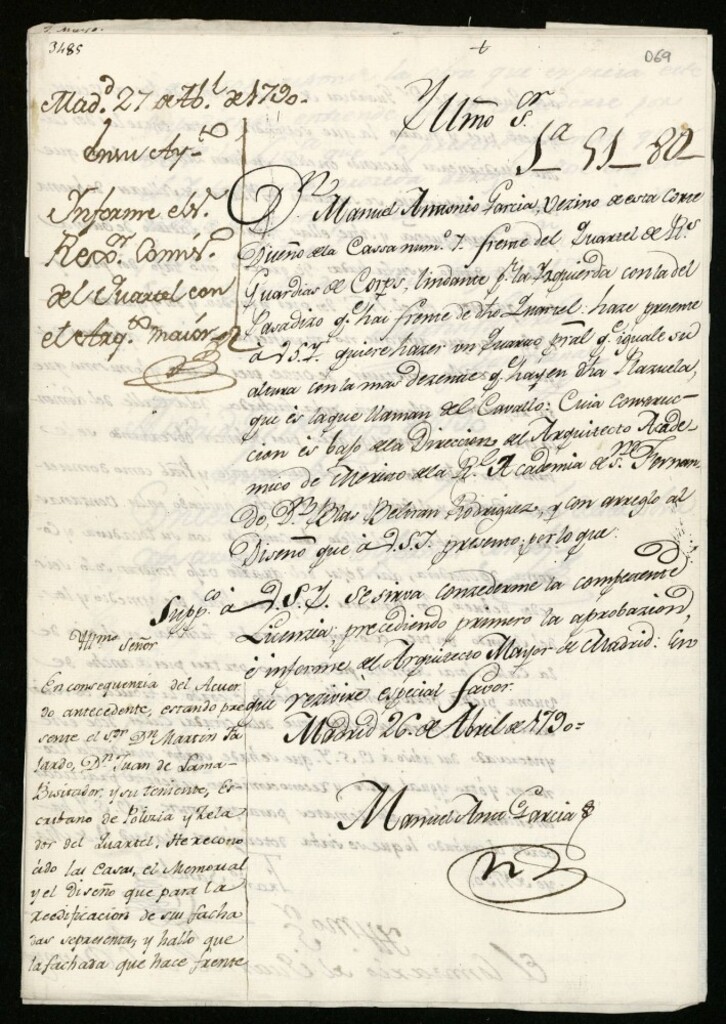 3485
069
Mad.d 27 de Ab.l de 1790.
en su Ay.to
Informe el S.r
Rex.or Comis.o
del Quartel con
el Arq.to maior
Yllmo S.or
1a 51 80
D.n Manuel Antonio Garcia, vezino de esta Corte
Dueño de la Cassa num.o 7. frente del Quartel de R.s
Guardias de Corps, lindante p.r la Izquierda con la del
Pasadizo q.e hai frente de dho Quartel: haze presente
á V.S.Y. quiere hazer un Quarto pral q.e iguale su
altura con la mas dezente q.e hay en dha Plazuela,
que es la que llaman del Cavallo: Cuia construc-
cion es bajo de la Direccion del Arquitecto Acade-
mico de Merito de la R.l Academia de S.n Fernan-
do, D.n Blas Beltran Rodriguez, y con arreglo al
Diseño que á V.S.Y. presento, por lo que.
Supp.co á V.S.Y. se sirva conzederme la competente
Lizenzia; precediendo primero la aprobazion,
é informe del Arquitecto Mayor de Madrid: En
que rezivire especial favor.
Madrid 26 de Abril de 1790=
Manuel Ant.o Garcia
Yllmo Señor
En consequenzia del Acuer
do antecedente, estando pre
sente el s.or D.n Martin Fa
lardo, D.n Juan de Lama
Bisitador, y su teniente, Es
cribano de Polizia y Zela
dor del Quartel, He recono
cido las Casas, el Memorial
y el Diseño que para la
reedificacion de sus facha
das representa, y hallo que
la fachada que hace frente